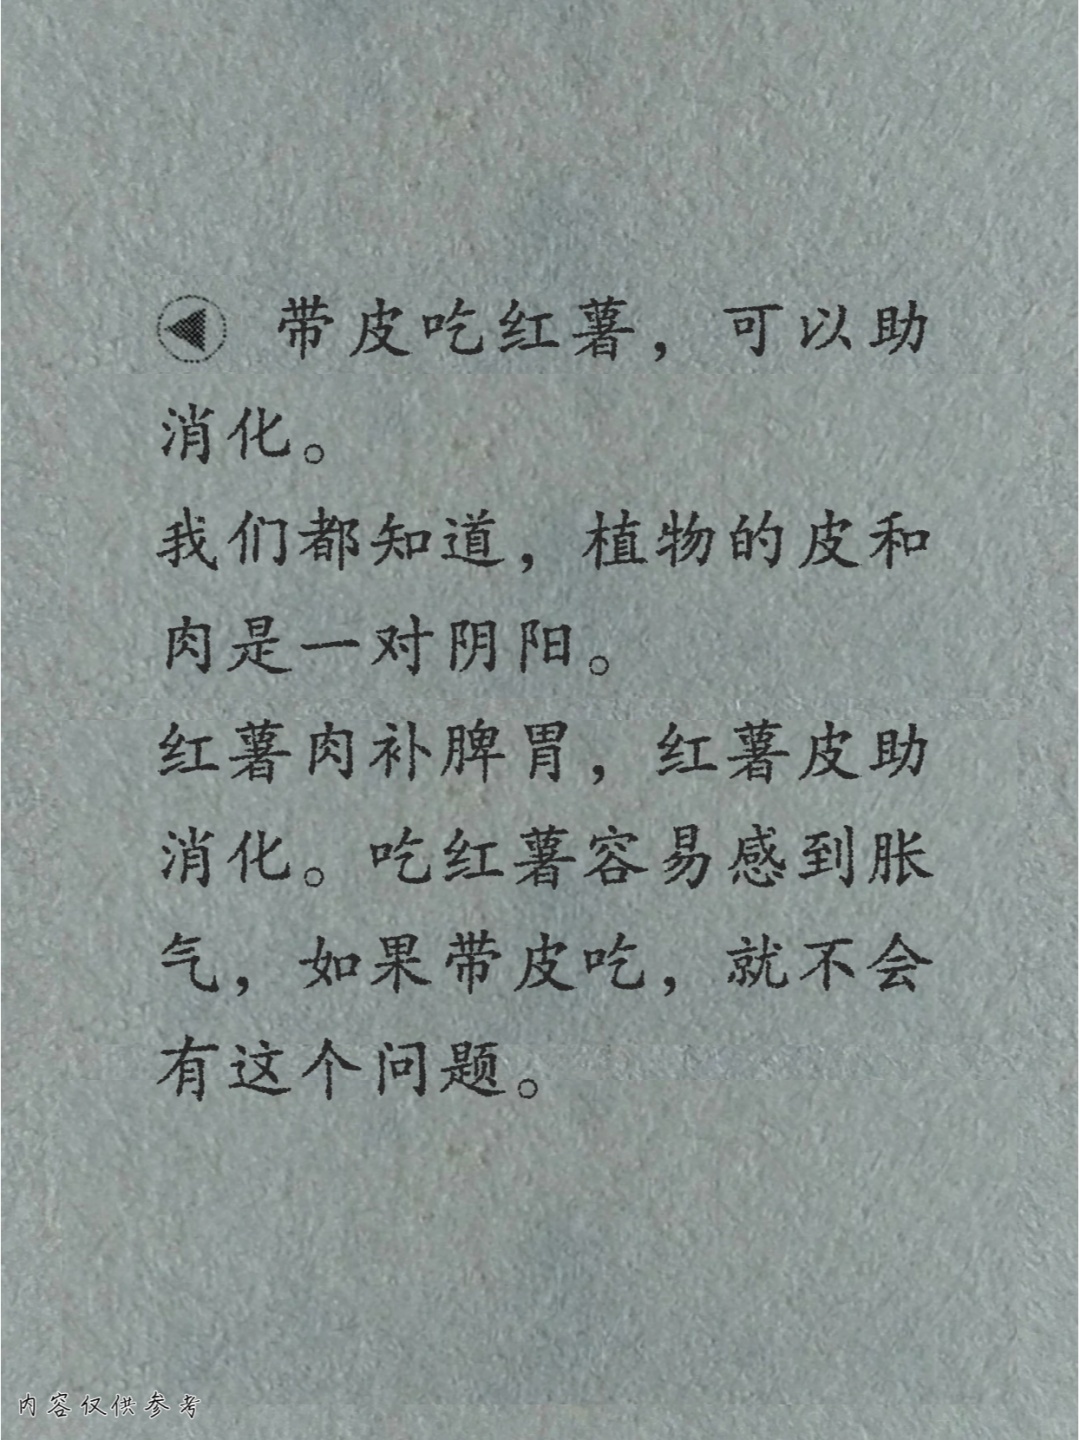 带皮吃红薯，可以助
消化。
我们都知道，植物的皮和
肉是一对阴阳。
红薯肉补脾胃，红薯皮助
消化。吃红薯容易感到胀
气，如果带皮吃，就不会
有这个问题。
内容仅供参考